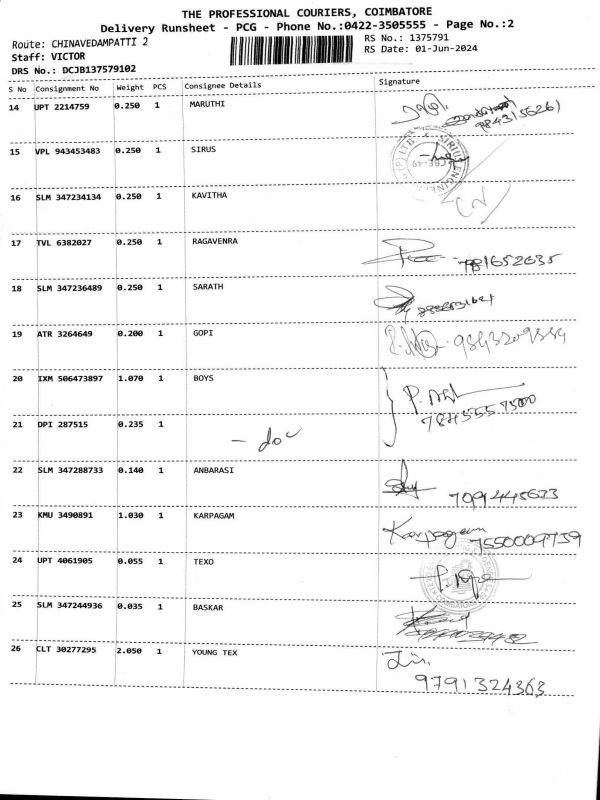 THE PROFESSIONAL COURIERS, COIMBATORE
Delivery Runsheet - PCG - Phone No.:0422-3505555 - Page No.:2
Route: CHINAVEDAMPATTI 2 RS No.: 1375791
Staff: VICTOR RS Date: 01-Jun-2024
DRS No.: DCJB137579102
S No Consignment No Weight PCS Consignee Details Signature
14 UPT 2214759 0.250 1 MARUTHI
9843156261
15 VPL 943453483 0.250 1 SIRUS
16 SLM 347234134 0.250 1 KAVITHA
17 TVL 6382027 0.250 1 RAGAVENRA
781652635
18 SLM 347236489 0.250 1 SARATH
19 ATR 3264649 0.200 1 GOPI
20 IXM 506473897 1.070 1 BOYS
21 DPI 287515 0.235 1
- doc
22 SLM 347288733 0.140 1 ANBARASI
7091445633
23 KMU 3490891 1.030 1 KARPAGAM Karpagam
7550009739
24 UPT 4061905 0.055 1 TEXO
25 SLM 347244936 0.035 1 BASKAR
26 CLT 30277295 2.050 1 YOUNG TEX
9791324363